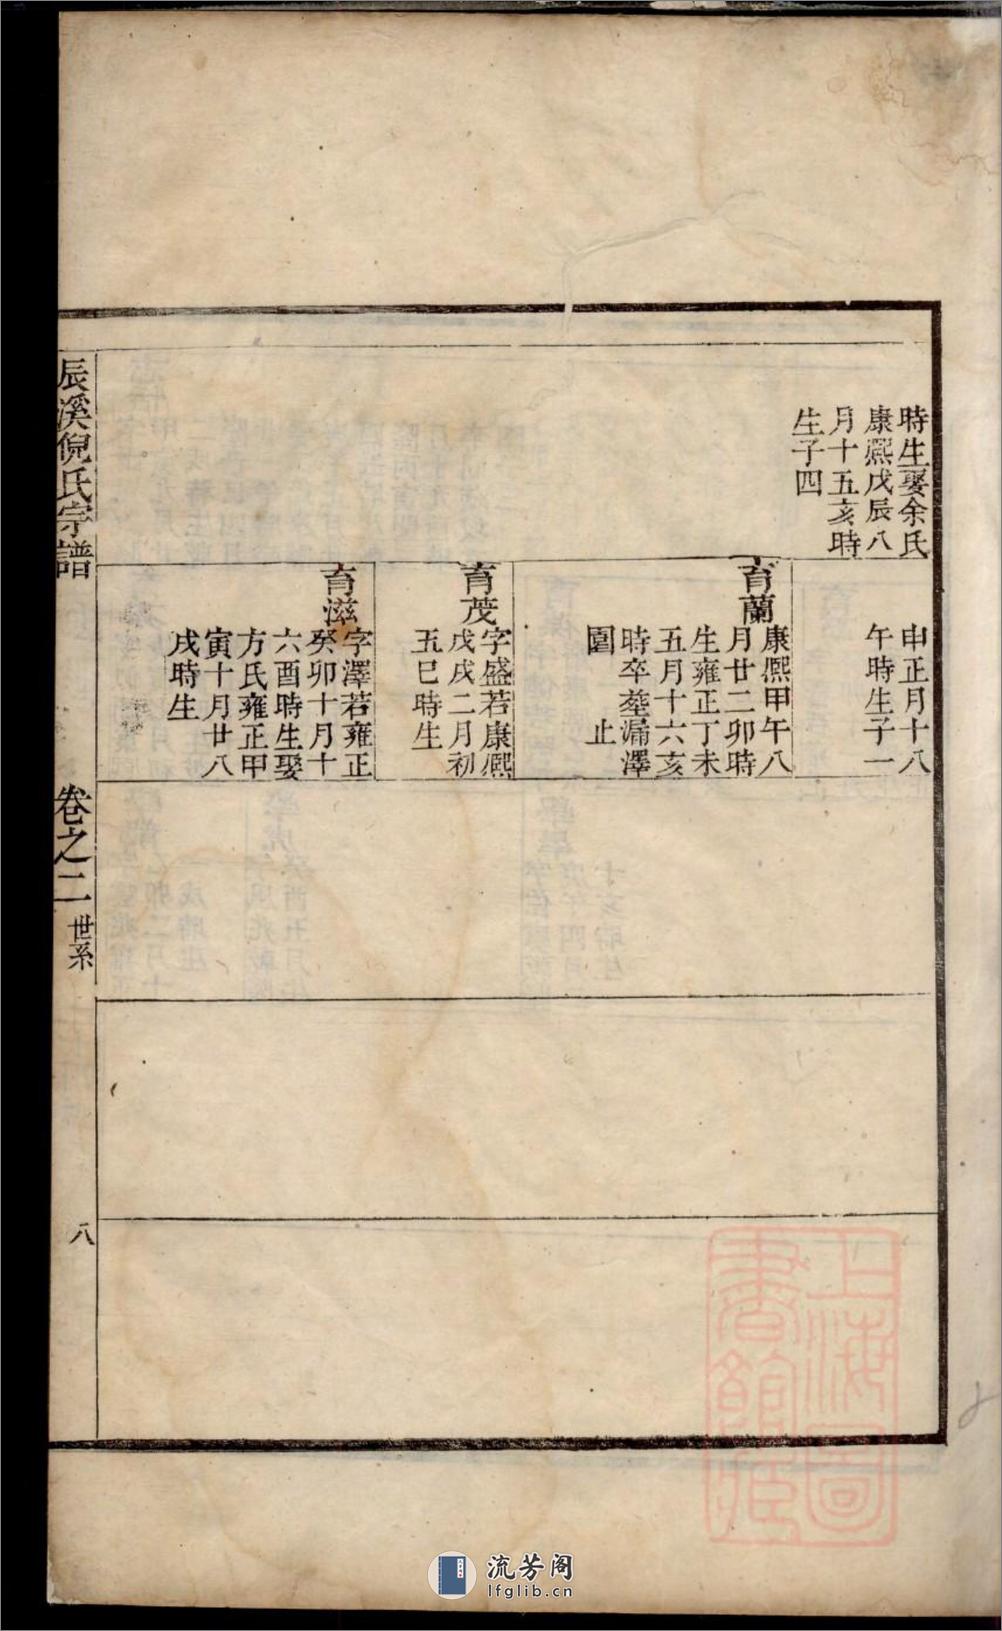 時生娶余氏
康熈戊辰八
月十五亥時
生子四
申正月十八
午時生子一
育蘭
康熈甲午八
月廿二卯時
生雍正丁未
五月十六亥
時卒塟漏澤
園 止
育茂
字盛若康熈
戊戌二月初
五巳時生
育滋
字澤若雍正
癸卯十月十
六酉時生娶
方氏雍正甲
寅十月廿八
戌時生
辰溪倪氏宗譜
卷之二
世系
八
上海圖
書館藏
流芳阁
lfglib.cn